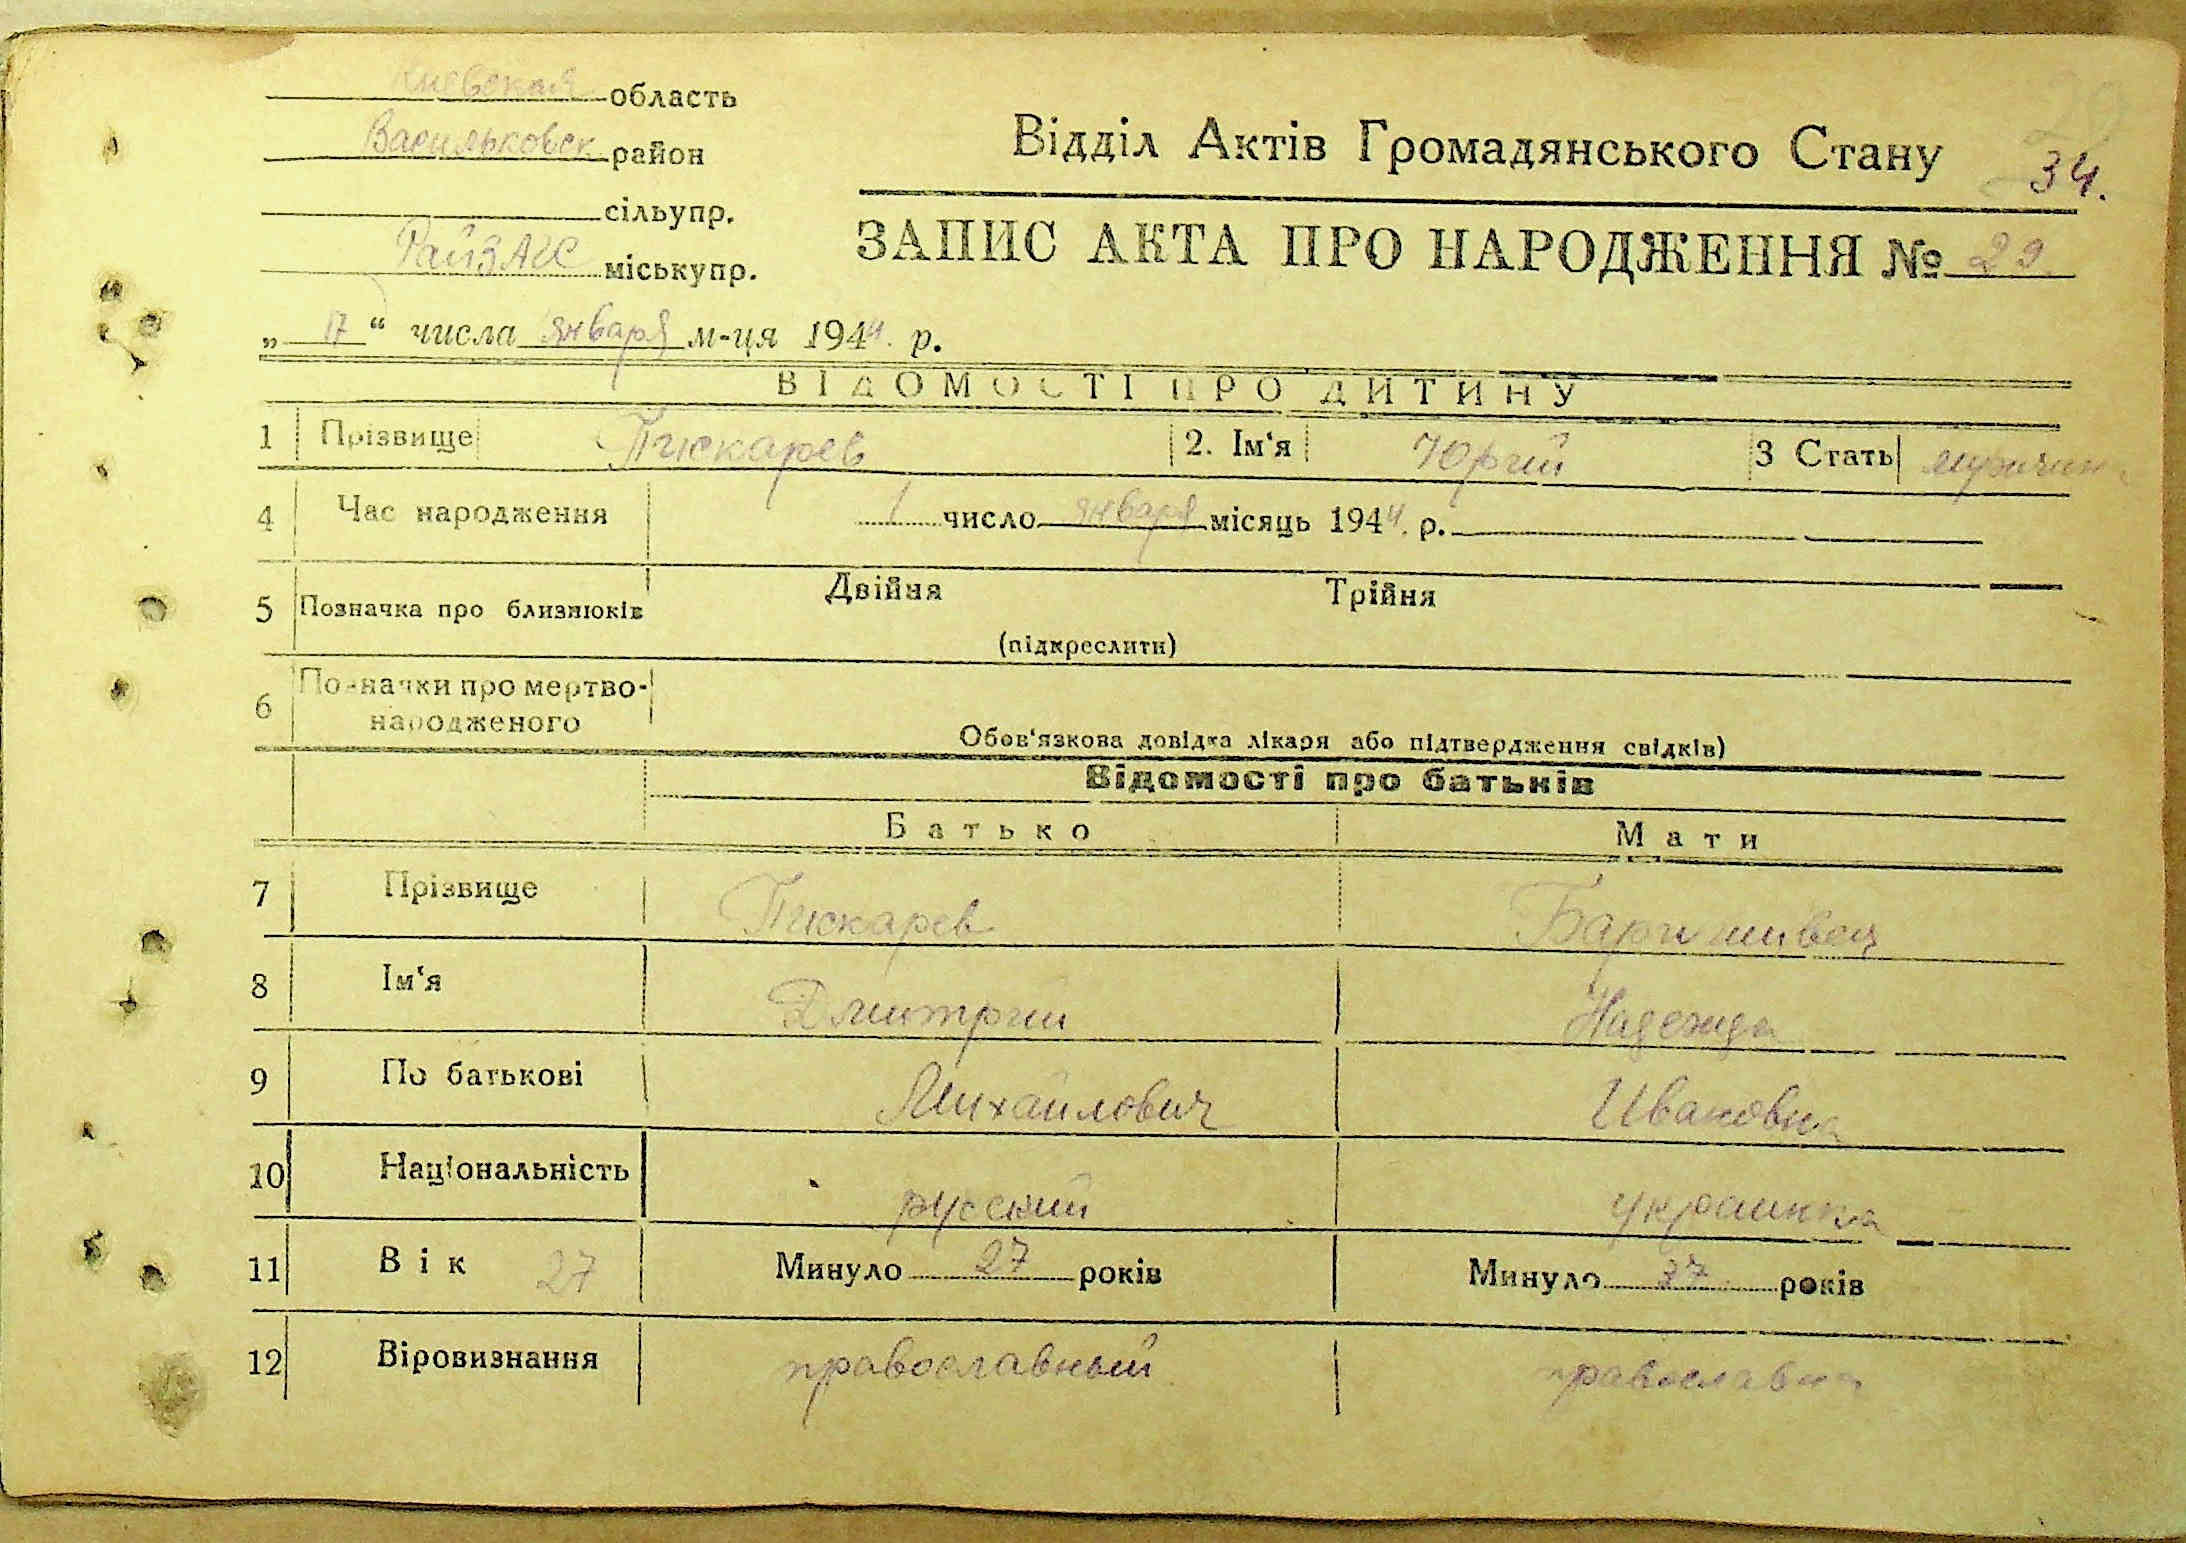 Киевская область
Васильковск район
сільупр.
РайЗАГС міськупр.
Відділ Актів Громадянського Стану
34.
ЗАПИС АКТА ПРО НАРОДЖЕННЯ № 29
„ 17 “ числа января м-ця 1944. р.
ВІДОМОСТІ ПРО ДИТИНУ
1 Прізвище Пискарев 2. Ім‘я Юрий 3 Стать мужчин.
4 Час народження 1 число января місяць 1944. р.
5 Позначка про близнюків Двійня Трійня
(підкреслити)
6 Позначки про мертво-
народженого
Обов‘язкова довідка лікаря або підтвердження свідків)
Відомості про батьків
Батько Мати
7 Прізвище Пискарев Баришивец
8 Ім‘я Дмитрий Надежда
9 По батькові Михайлович Ивановна
10 Національність русский украинка
11 Вік 27 Минуло 27 років Минуло 37 років
12 Віровизнання православный православна